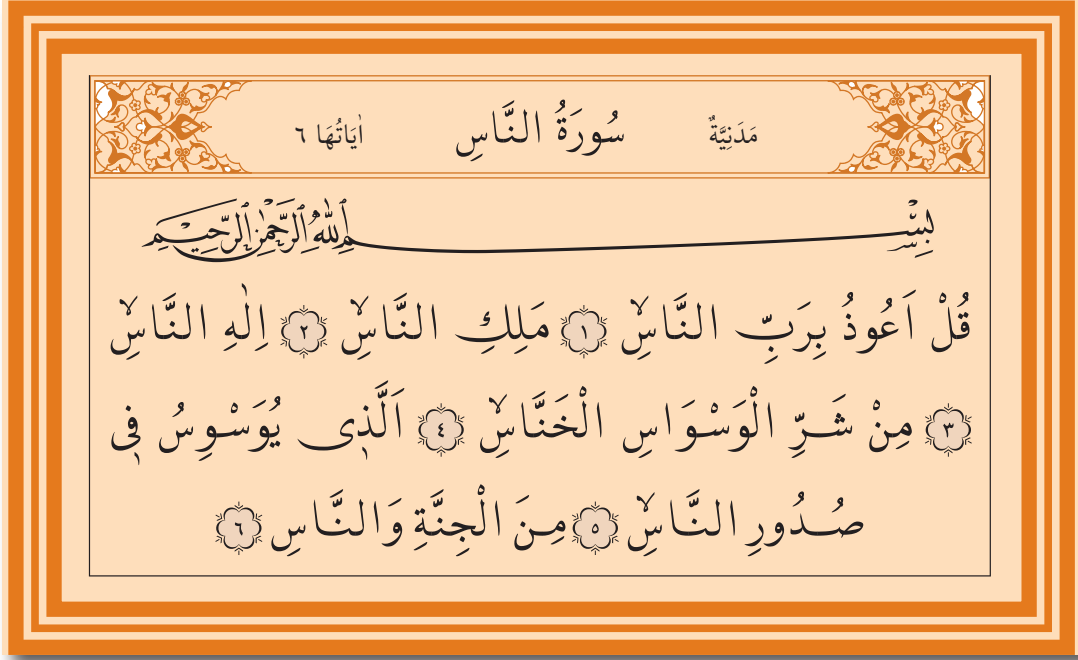 مَدَنِيَّةٌ سُورَةُ النَّاسِ اٰيَاتُهَا ٦
بِسْمِ اللّٰهِ الرَّحْمٰنِ الرَّحِيمِ
قُلْ اَعُوذُ بِرَبِّ النَّاسِۙ ١ مَلِكِ النَّاسِۙ ٢ اِلٰهِ النَّاسِۙ
٣ مِنْ شَرِّ الْوَسْوَاسِ الْخَنَّاسِۙ ٤ اَلَّذٖى يُوَسْوِسُ فٖى
صُدُورِ النَّاسِۙ ٥ مِنَ الْجِنَّةِ وَالنَّاسِ ٦